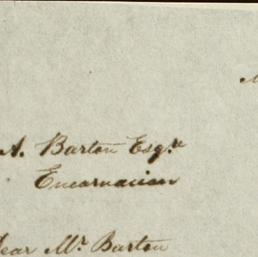 A. Barton Esqre
Encarnacion
Dear Mr. Barton